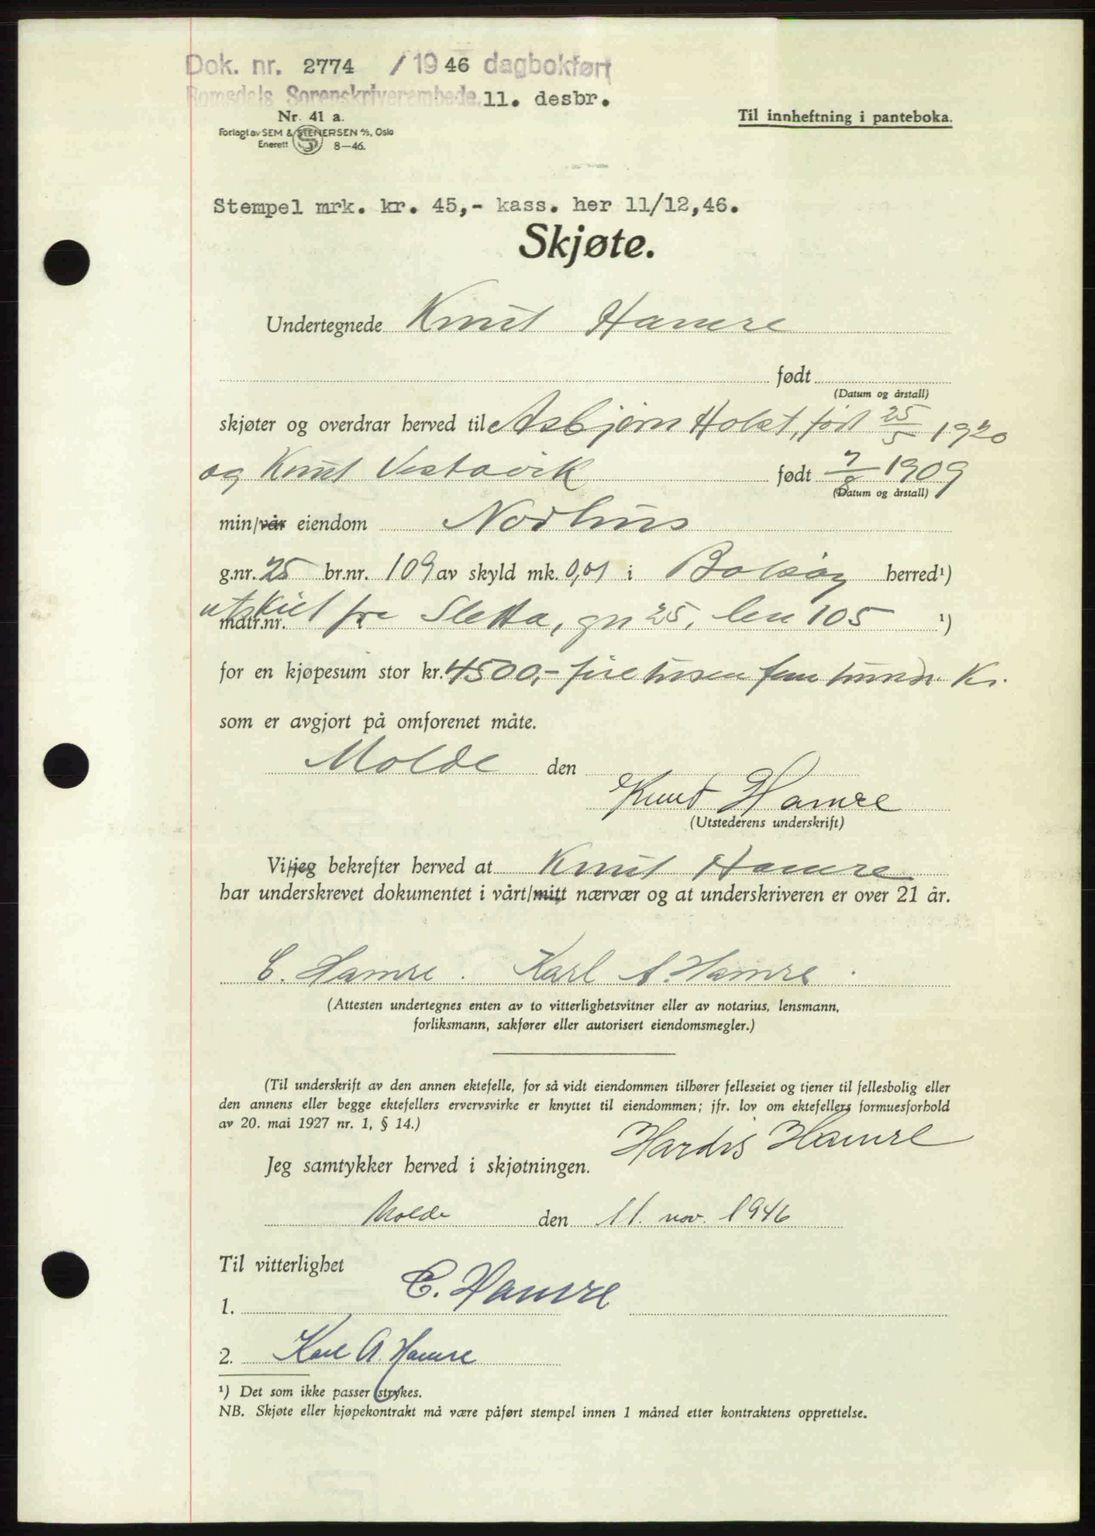 Dok. nr. 2774 / 1946 dagbokført
Romsdals Sorenskriverembede. 11. desbr.
Nr. 41 a.
Forlagt av SEM & STENERSEN A/S, Oslo
Enerett 8-46.
Til innheftning i panteboka.
Stempel mrk. kr. 45,- kass. her 11/12,46.
Skjøte.
Undertegnede Knut Hamre
født
(Datum og årstall)
skjøter og overdrar herved til Asbjørn Holst, født 25/5 1920
og Knut Vestavik født 7/8 1909
(Datum og årstall)
min/vår eiendom Nordhus
g.nr. 25 br.nr. 109 av skyld mk. 0,01 i Bolsøy herred¹)
utskilt fra Sletta, gn 25, bnr 105
matr.nr. ¹)
for en kjøpesum stor kr. 4500,- fire tusen fem hundr. Kr.
som er avgjort på omforenet måte.
Molde den
Knut Hamre
(Utstederens underskrift)
Vi/jeg bekrefter herved at Knut Hamre
har underskrevet dokumentet i vårt/mitt nærvær og at underskriveren er over 21 år.
C. Hamre. Karl A. Hamre.
(Attesten undertegnes enten av to vitterlighetsvitner eller av notarius, lensmann,
forliksmann, sakfører eller autorisert eiendomsmegler.)
(Til underskrift av den annen ektefelle, for så vidt eiendommen tilhører felleseiet og tjener til fellesbolig eller
den annens eller begge ektefellers ervervsvirke er knyttet til eiendommen; jfr. lov om ektefellers formuesforhold
av 20. mai 1927 nr. 1, § 14.)
Hardis Hamre
Jeg samtykker herved i skjøtningen.
Molde den 11. nov. 1946
Til vitterlighet
1. C. Hamre
2. Karl A. Hamre
¹) Det som ikke passer strykes.
NB. Skjøte eller kjøpekontrakt må være påført stempel innen 1 måned etter kontraktens opprettelse.